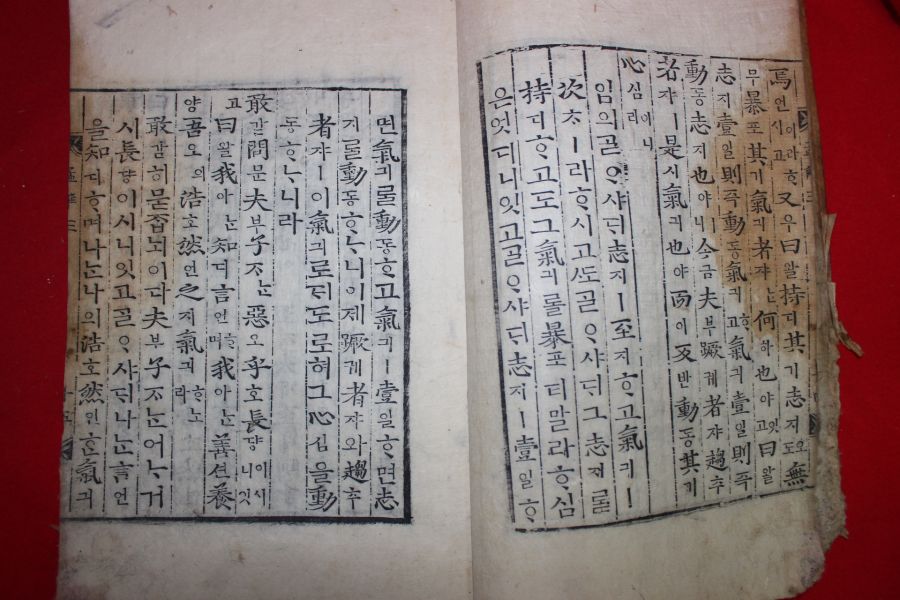 焉언이라ᄒᆞ시고又우曰왈持디其기志지오도無
무暴포其기氣긔者쟈ᄂᆞᆫ何하也야잇고曰왈
志지壹일則즉動동氣긔ᄒᆞ고氣긔壹일則즉
動동志지也야ㅣ니今금夫부蹶궤者쟈趨추
者쟈ㅣ是시氣긔也야而이反반動동其기
心심이니라
임의골ᄋᆞ샤ᄃᆡ志지ㅣ至지ᄒᆞ고氣긔ㅣ
次ᄎᆞㅣ라ᄒᆞ시고ᄯᅩ골ᄋᆞ샤ᄃᆡ그志지롤
持디ᄒᆞ고도그氣긔롤暴포티말라ᄒᆞ심
은엇디니잇고골ᄋᆞ샤ᄃᆡ志지ㅣ壹일ᄒᆞ
면氣긔롤動동ᄒᆞ고氣긔ㅣ壹일ᄒᆞ면志
지롤動동ᄒᆞᄂᆞ니이제蹶궤者쟈와趨추
者쟈ㅣ이氣긔로ᄃᆡ도로혀그心심을動
동ᄒᆞᄂᆞ니라
敢감問문夫부子ᄌᆞᄂᆞᆫ惡오乎호長댱이시니잇
고曰왈我아ᄂᆞᆫ知디言언ᄒᆞ며我아ᄂᆞᆫ善션養
양吾오의浩호然연之지氣긔ᄒᆞ노라
敢감히묻ᄌᆞᆸ노이다夫부子ᄌᆞᄂᆞᆫ어ᄂᆞ거
시長댱이시니잇고골ᄋᆞ샤ᄃᆡ나ᄂᆞᆫ言언
을知디ᄒᆞ며나ᄂᆞᆫ나의浩호然연ᄒᆞᆫ氣긔